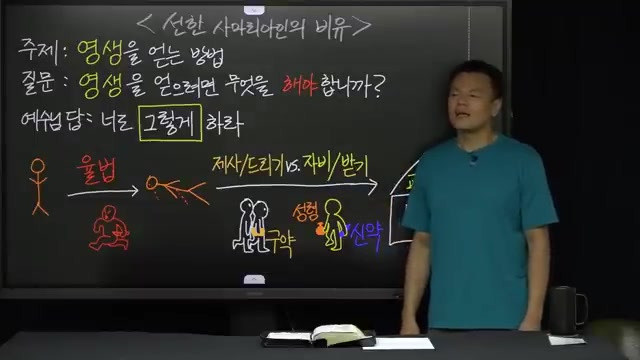 < 선한 사마리아인의 비유 >
주제 : 영생을 얻는 방법
질문 : 영생을 얻으려면 무엇을 해야 합니까?
예수님 답 : 너도 그렇게 하라
율법
제사/드리기 vs. 자비/받기
성령
구약
신약